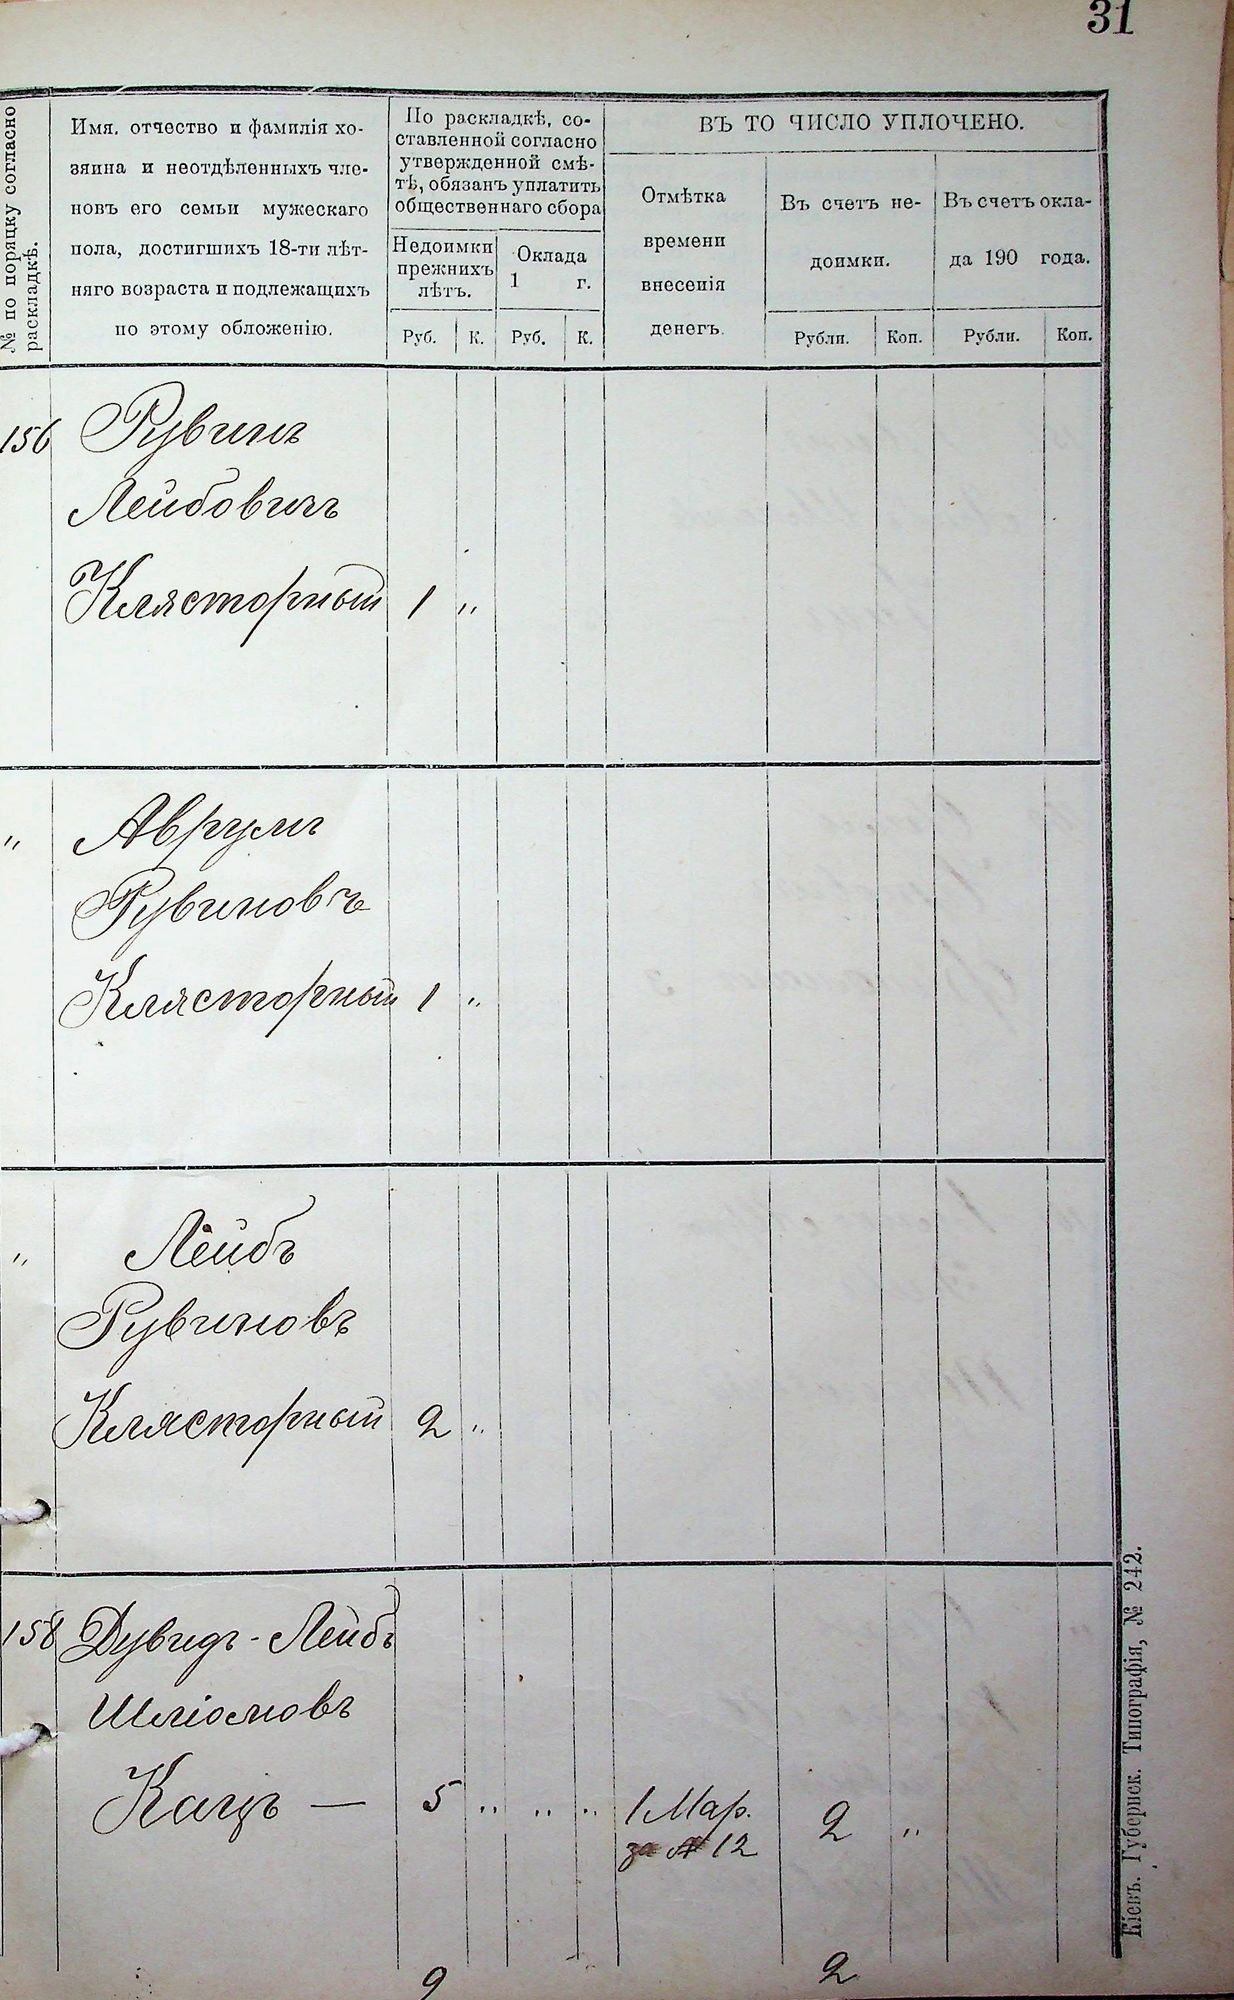 31
№ по поряцку согласно
раскладкѣ.
Имя, отчество и фамилія хо-
зяина и неотдѣленныхъ чле-
новъ его семьи мужескаго
пола, достигшихъ 18-ти лѣт-
няго возраста и подлежащихъ
по этому обложенію.
По раскладкѣ, со-
ставленной согласно
утвержденной смѣ-
тѣ, обязанъ уплатить
общественнаго сбора
Недоимки
прежнихъ
лѣтъ.
Оклада
1 г.
Руб. К. Руб. К.
ВЪ ТО ЧИСЛО УПЛОЧЕНО.
Отмѣтка
времени
внесенія
денегъ.
Въ счетъ не-
доимки.
Въ счетъ окла-
да 190 года.
Рубли. Коп. Рубли. Коп.
156 Рувинъ
Лейбовичъ
Клясторный 1 "
" Аврумъ
Рувиновъ
Клясторный 1 "
" Лейбъ
Рувиновъ
Клясторный 2 "
158 Дувидъ-Лейбъ
Шліомовъ
Кацъ — 5 " " " 1 Мар. 2 "
за № 12
9 2
Кіевъ. Губернск. Типографія, № 242.